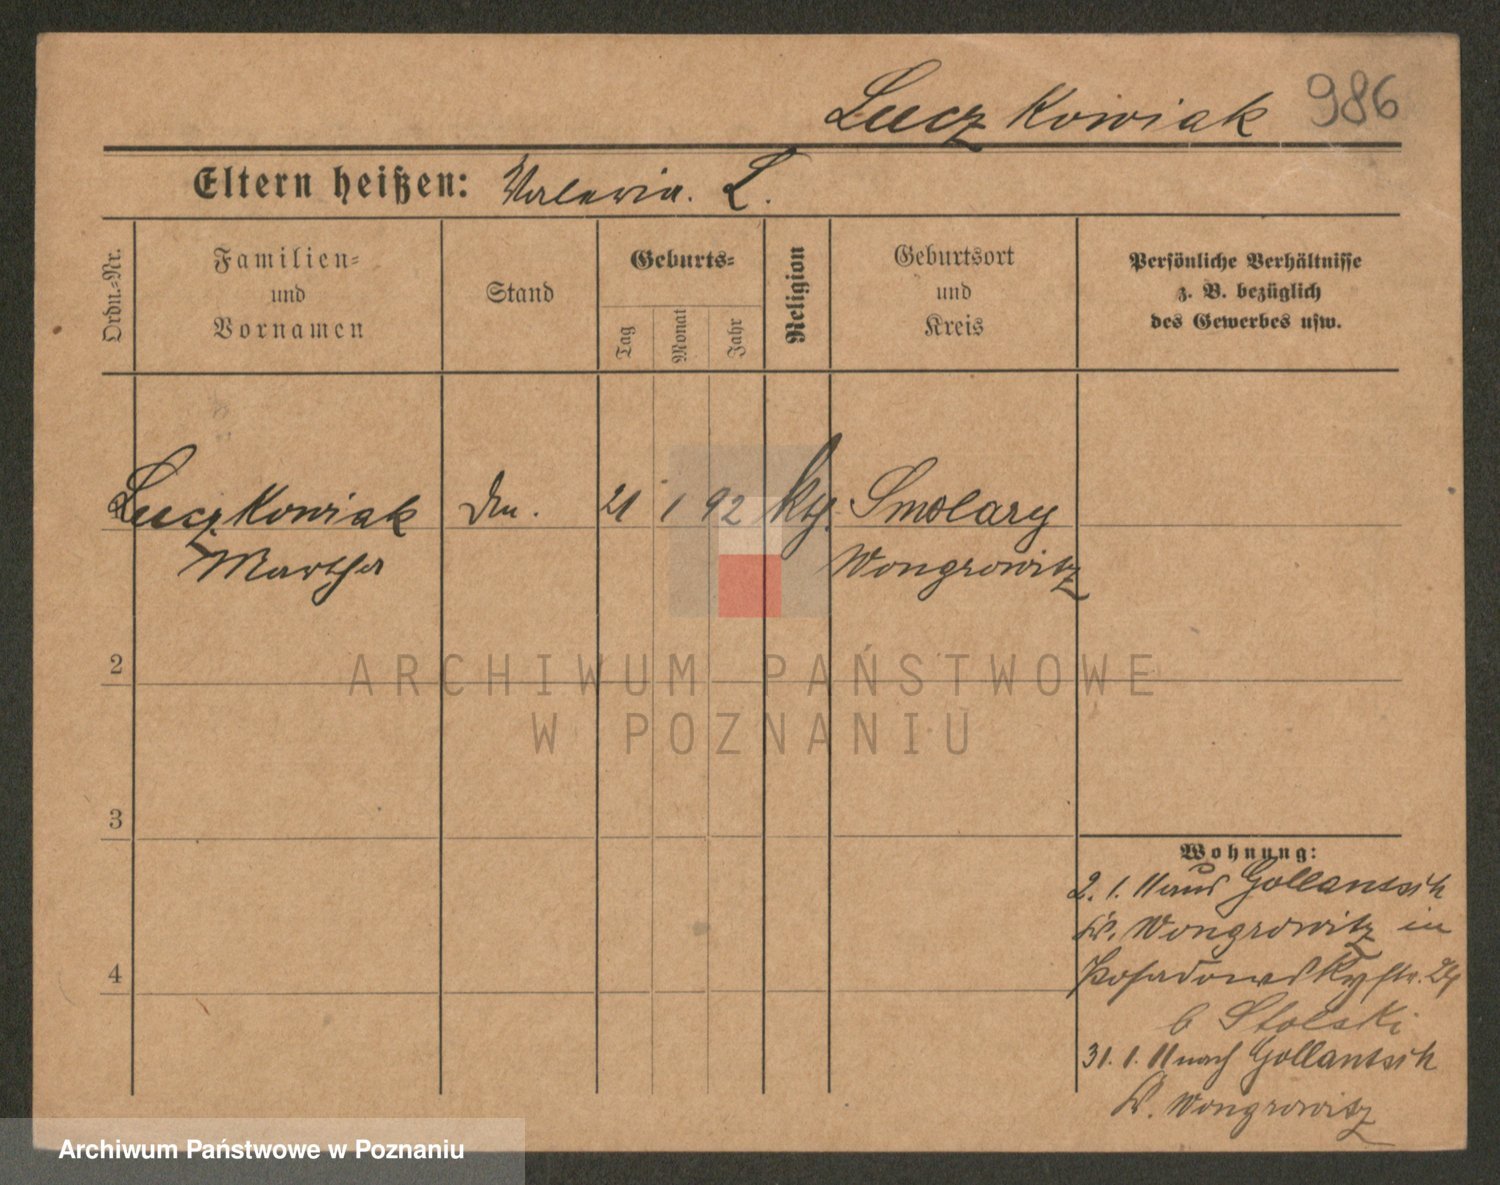 Luczkowiak 986
Eltern heißen: Valeria. L.
Ordn.-Nr.
Familien-
und
Vornamen
Stand
Geburts-
Tag
Monat
Jahr
Religion
Geburtsort
und
Kreis
Persönliche Verhältnisse
z. B. bezüglich
des Gewerbes usw.
Luczkowiak 21 1 92 Smolary
Martha Wongrowitz
2
3
4
Wohnung:
2. 1. 11 aus Gollantsch
K. Wongrowitz in
Posadowskystr. 24
b Stolski
31. 1. 11 nach Gollantsch
K. Wongrowitz
ARCHIWUM PAŃSTWOWE
W POZNANIU
Archiwum Państwowe w Poznaniu